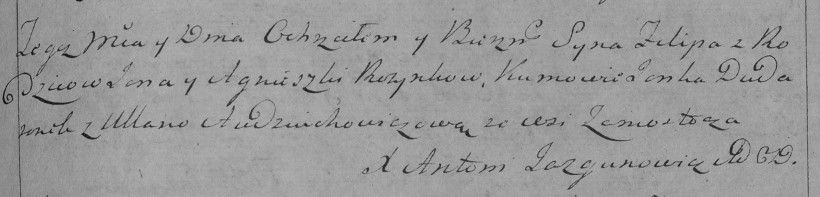 Tegoż Mca y Dnia Ochrzciłem y Bierzm: Syna Filipa z Ro
Dzicow Jana y Agnieszki Rozynkow, Kumowie Janka Duda
ronek z Ullano Audziuchowiczową ze wsi Zamostocza
X Antoni Jazgunowicz